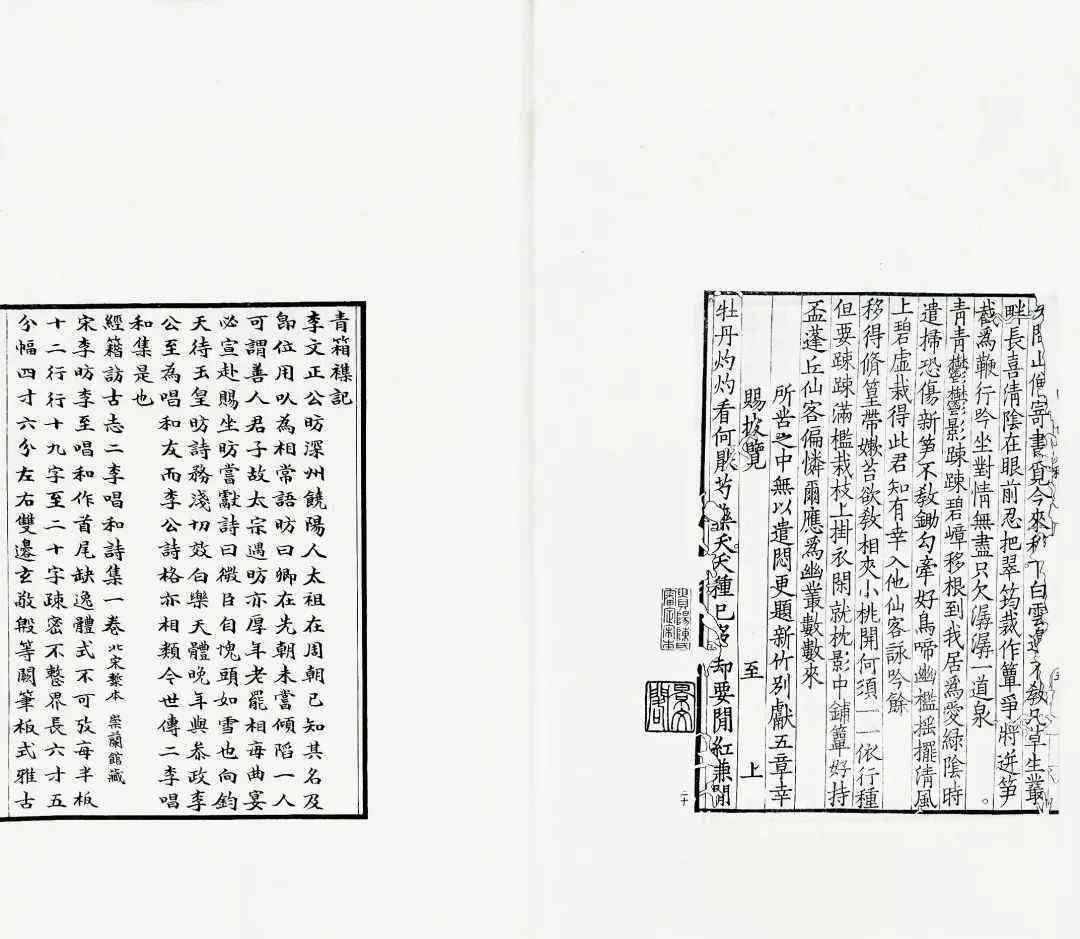 問山僧寄書覓今來種下白雲邊不教凡草生叢
畔長喜清陰在眼前忍把翠筠裁作簟爭將迸笋
截爲鞭行吟坐對情無盡只欠潺潺一道泉
青青鬱鬱影踈踈碧嶂移根到我居爲愛緑陰時
遣掃恐傷新笋不教鋤勾牽好鳥啼幽檻摇擺清風
上碧虛栽得此君知有幸入他仙客詠吟餘
移得脩篁帶嫩苔欲教相夾小桃開何須一一依行種
但要踈踈滿檻栽枝上掛衣閑就枕影中鋪簟好持
盃蓬丘仙客偏憐爾應爲幽叢數數來
所苦之中無以遣悶更題新竹别獻五章幸
賜披覽 至 上
牡丹灼灼看何厭芍藥夭夭種已多却要閒紅兼閒
二十
貴陽陳氏審定宋本
景文閣
青箱襍記
李文正公昉深州饒陽人太祖在周朝已知其名及
卽位用以為相常語昉曰卿在先朝未嘗傾陷一人
可謂善人君子故太宗遇昉亦厚年老罷相每曲宴
必宣赴賜坐昉嘗獻詩曰微臣自愧頭如雪也向鈞
天待玉皇昉詩務淺切效白樂天體晚年與叅政李
公至為唱和友而李公詩格亦相類今世傳二李唱
和集是也
經籍訪古志二李唱和詩集一卷北宋槧本 崇蘭館藏
宋李昉李至唱和作首尾缺逸體式不可攷每半板
十二行行十九字至二十字疎密不整界長六寸五
分幅四寸六分左右雙邊玄敬殷等闕筆板式雅古